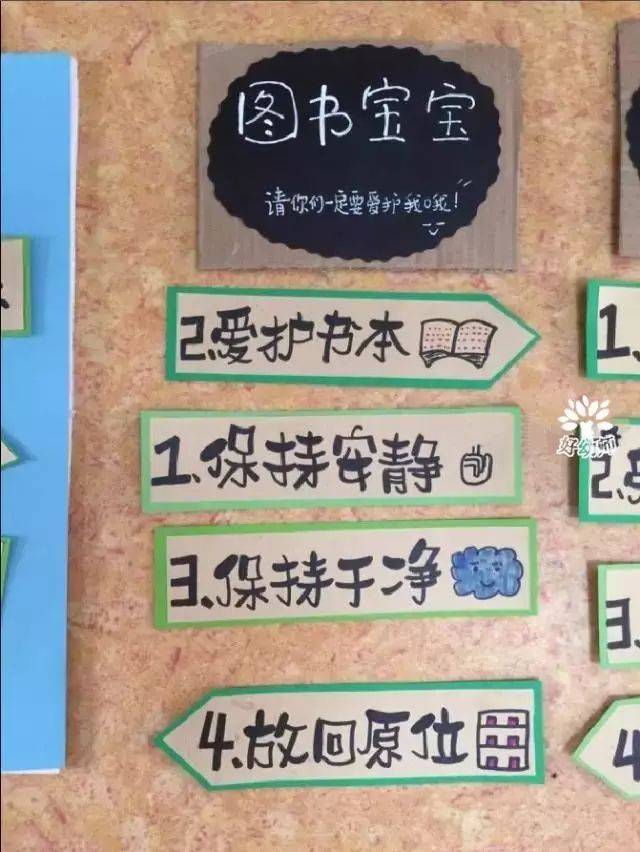 图书宝宝
请你们一定要爱护我哦!
2.爱护书本
1.保持安静
3.保持干净
4.放回原位
1.
好幼师
2.
3.
4